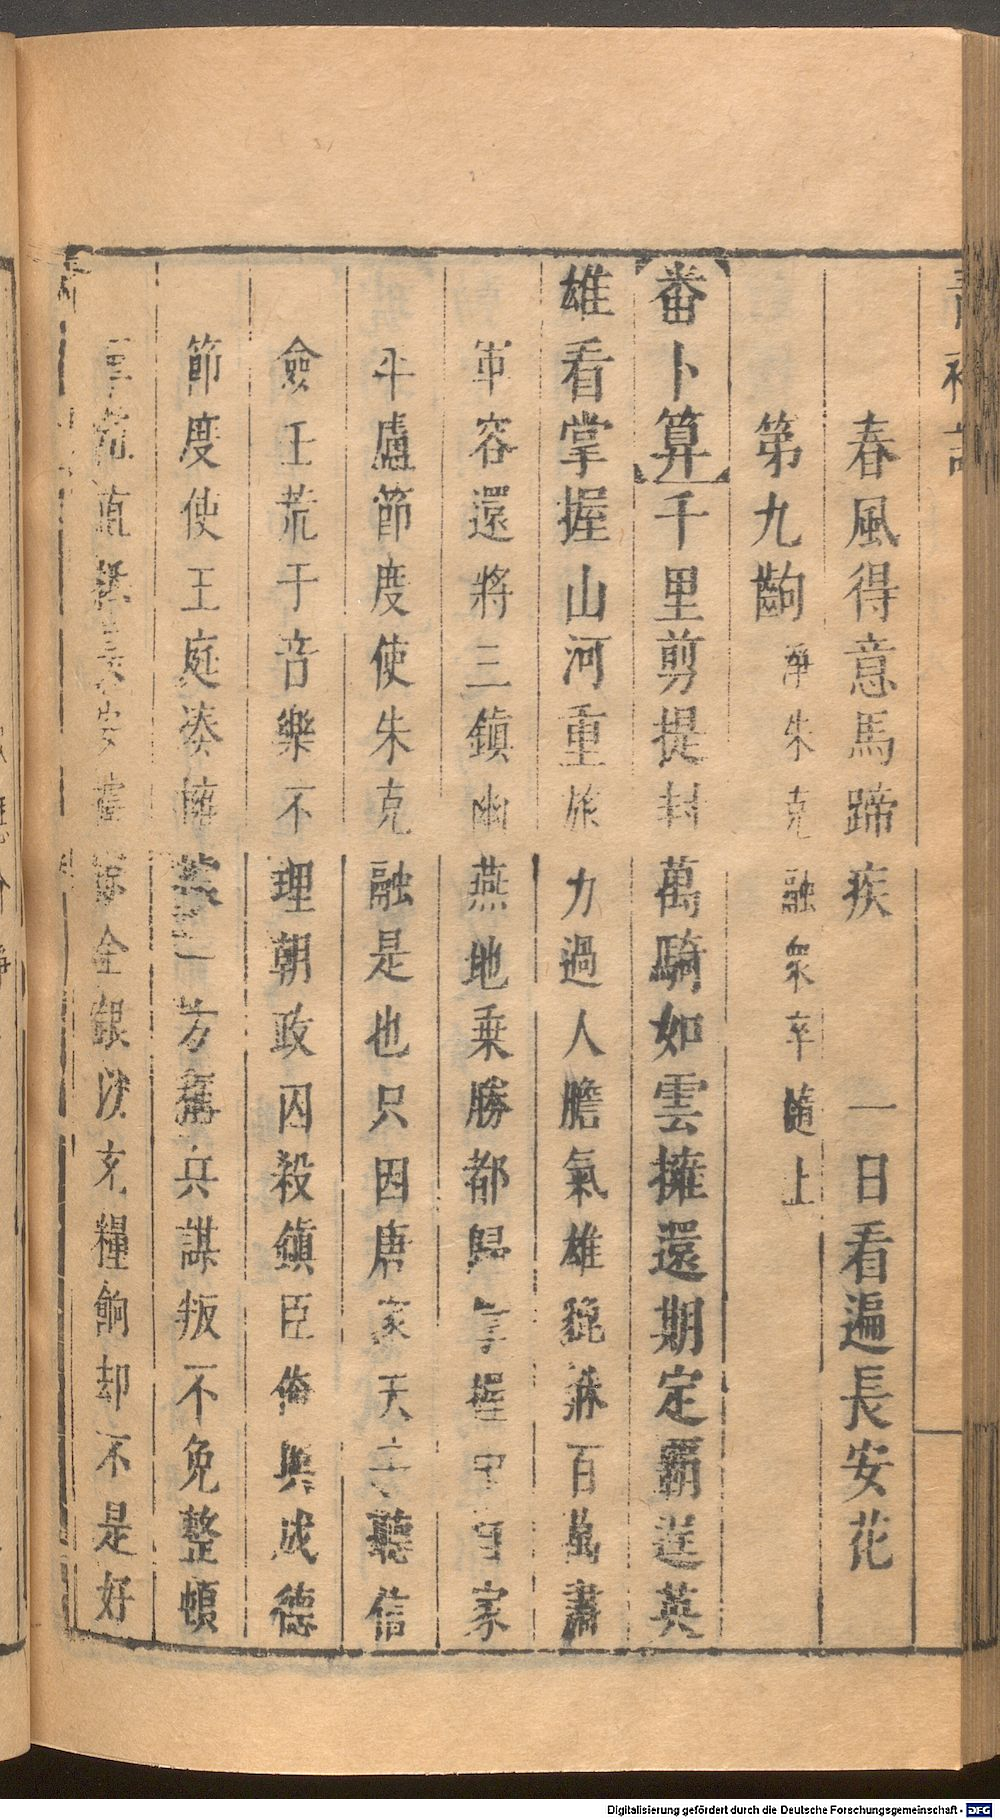 春風得意馬蹄疾　一日看遍長安花
第九齣 淨朱克融衆卒隨上
番卜算 千里剪提封萬騎如雲擁還期定霸逞英
雄看掌握山河重旅力過人膽氣雄貔貅百萬肅
軍容還將三鎮幽燕地乗勝都歸掌握中自家
平盧節度使朱克融是也只因唐家天子聽信
僉壬荒于音樂不理朝政囚殺鎮臣俺與成德
節度使王庭湊擁 一方稱兵謀叛不免整頓
金銀以充糧餉却不是好
Digitalisierung gefördert durch die Deutsche Forschungsgemeinschaft - DFG